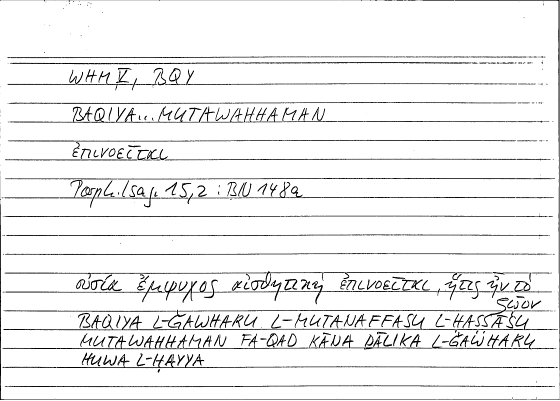 WHM V, BQY
BAQIYA...MUTAWAHHAMAN
ἐπινοεῖται
Porph. Isag. 15,2 : BN 148a
οὐσία ἔμψυχος αἰσθητικὴ ἐπινοεῖται, ἥτις ἦν τὸ
ζῷον
BAQIYA L-ǦAWHARU L-MUTANAFFASU L-ḤASSĀSU
MUTAWAHHAMAN FA-QAD KĀNA ḎĀLIKA L-ǦAWHARU
HUWA L-ḤAYYA